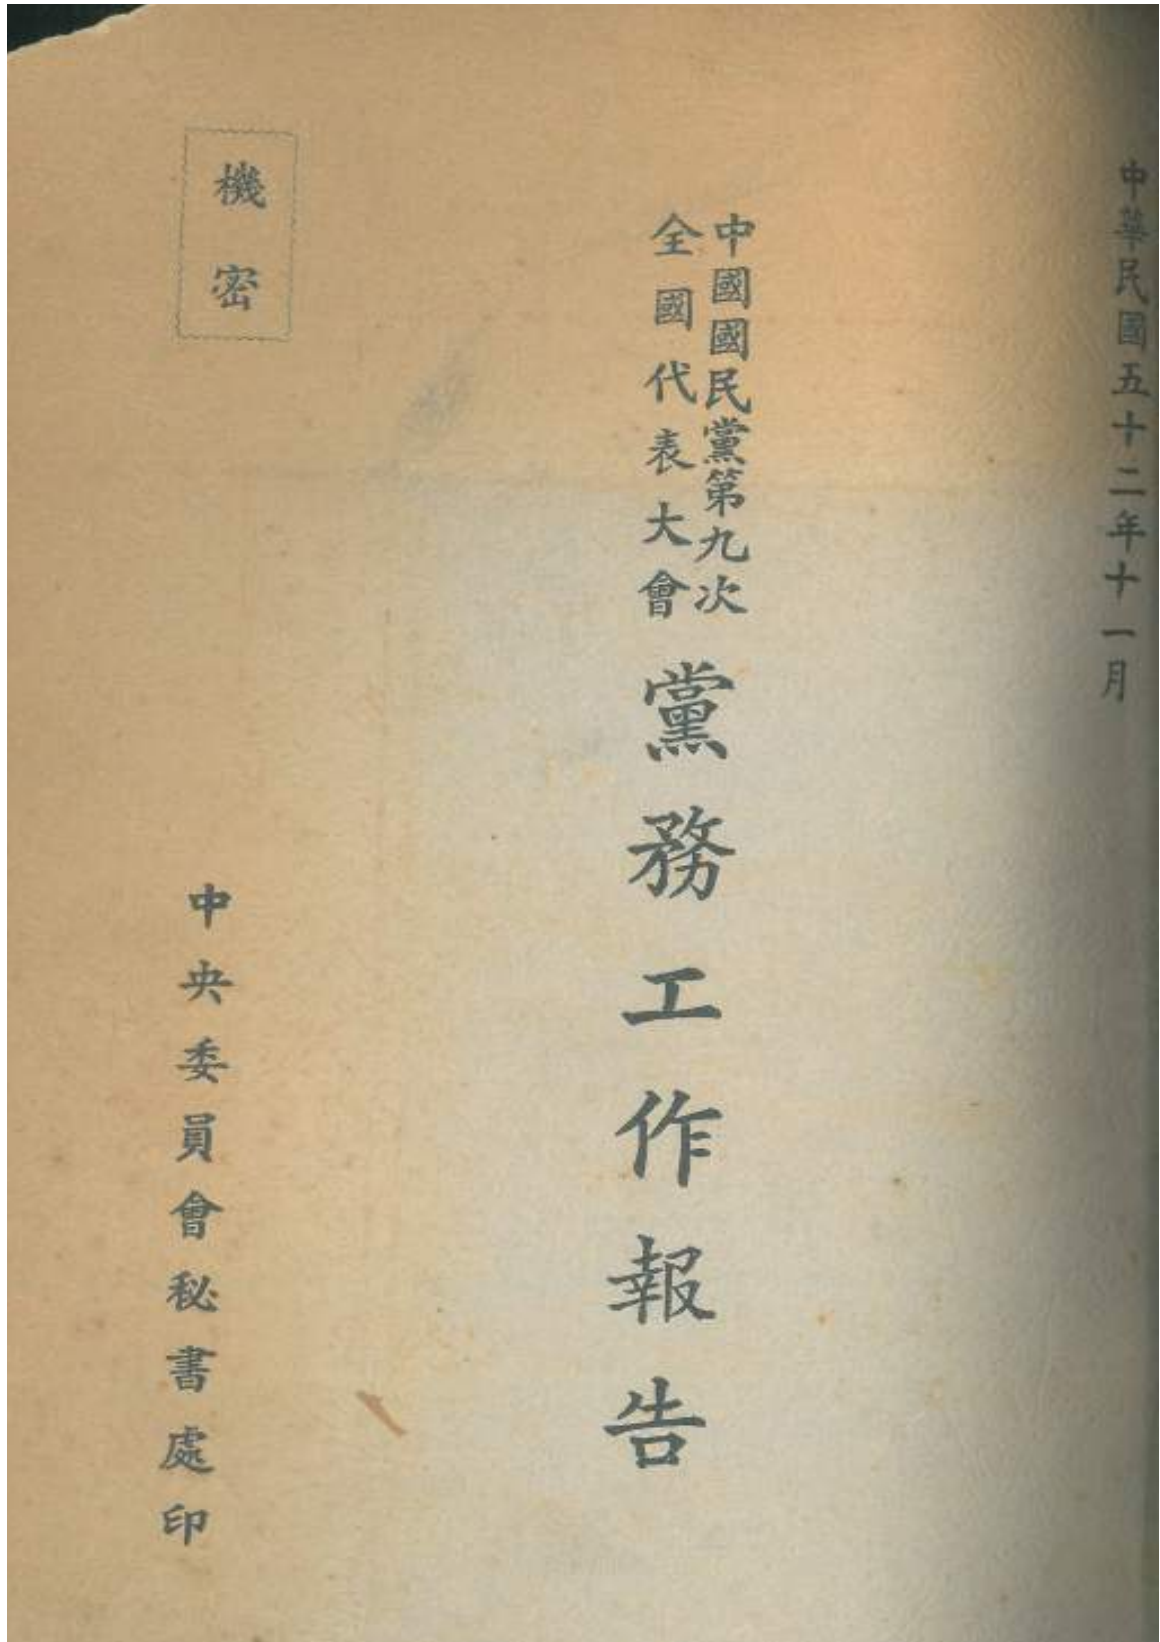 中華民國五十二年十一月
中國國民黨第九次
全國代表大會
黨務工作報告
機密
中央委員會秘書處印